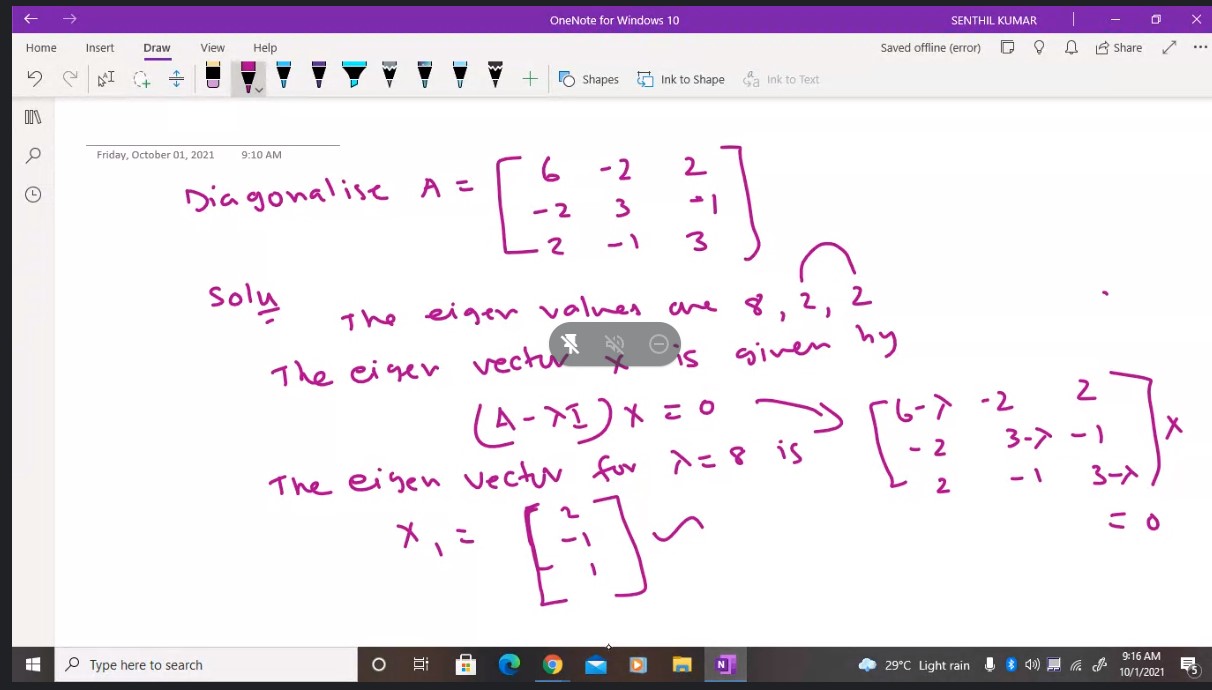 OneNote for Windows 10
SENTHIL KUMAR
Home Insert Draw View Help
Saved offline (error)
Share
Shapes
Ink to Shape
Ink to Text
Friday, October 01, 2021 9:10 AM
Diagonalise A = [ 6 -2 2
-2 3 -1
2 -1 3 ]
Soln
The eigen values are 8, 2, 2
The eigen vector X is given by
(A - λI) X = 0 → [ 6-λ -2 2
-2 3-λ -1
2 -1 3-λ ] X
= 0
The eigen vector for λ = 8 is
X1 = [ 2
-1
1 ]
Type here to search
29°C Light rain
9:16 AM
10/1/2021
5